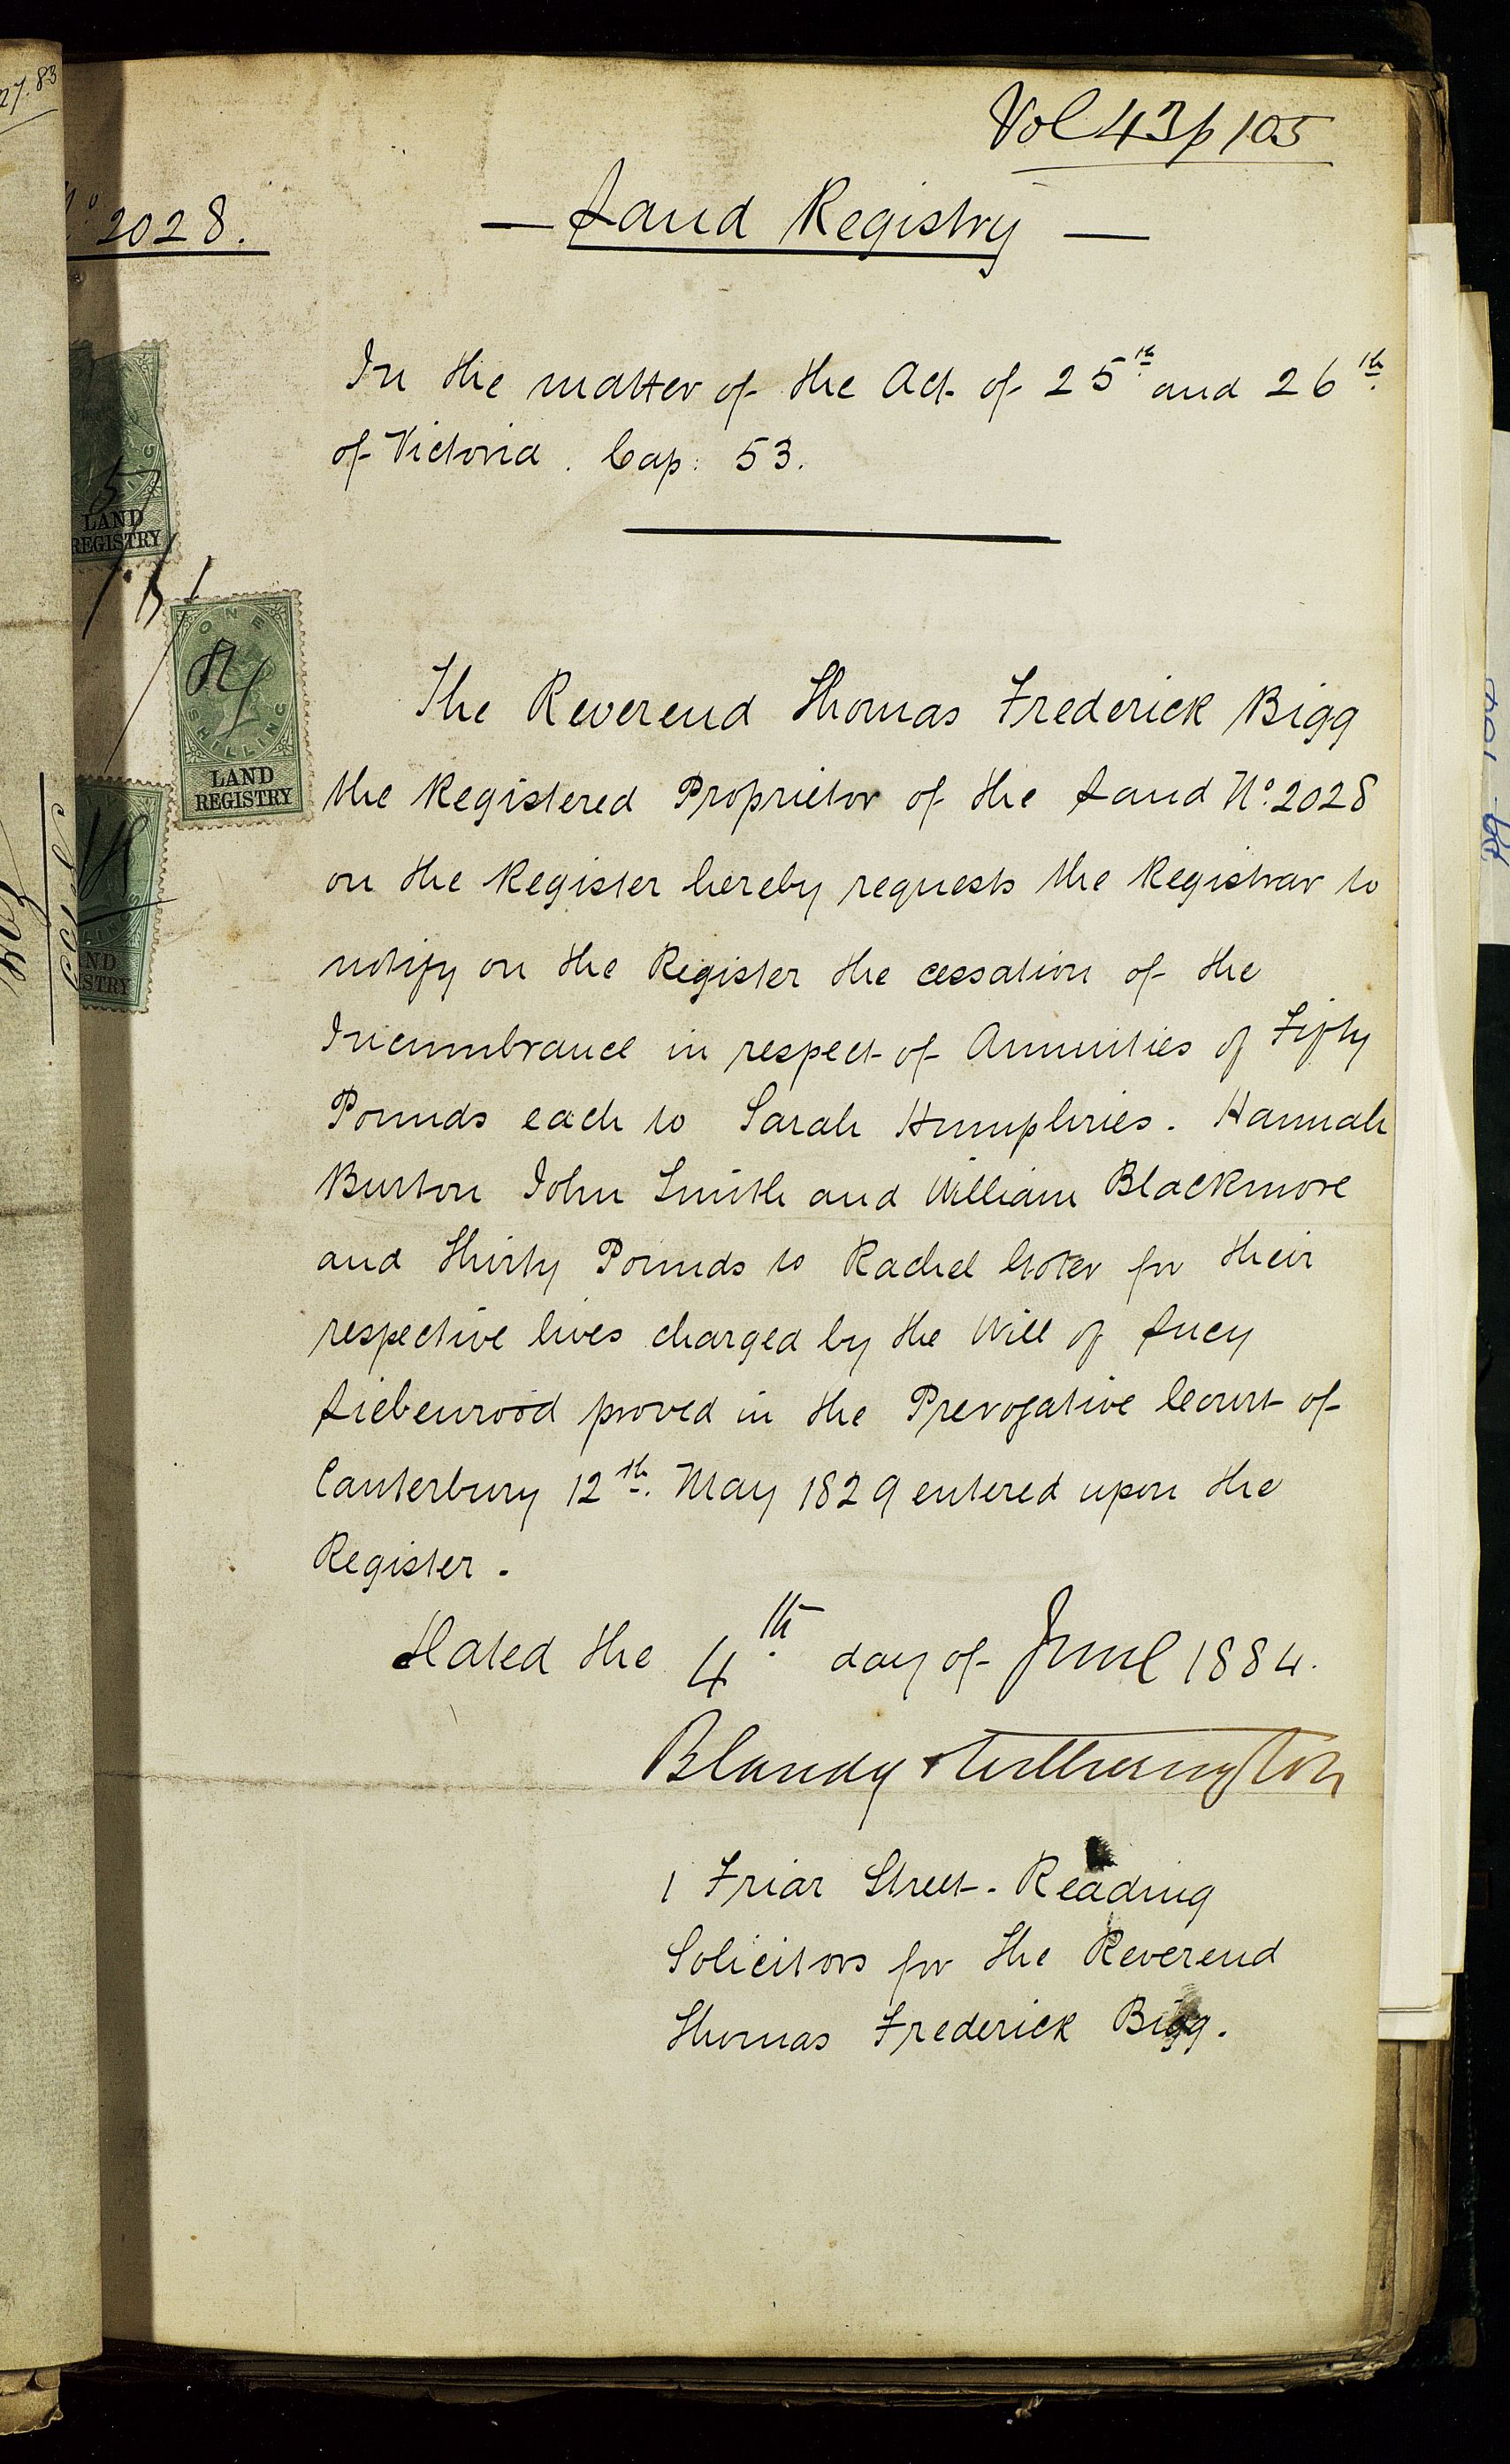 27.83
Vol 43 p 105
No. 2028.
— Land Registry —
In the matter of the Act of 25th and 26th
of Victoria. Cap: 53.
LAND
REGISTRY
ONE
SHILLING
LAND
REGISTRY
ND
STRY
The Reverend Thomas Frederick Bigg
the Registered Proprietor of the Land No. 2028
on the Register hereby requests the Registrar to
notify on the Register the cessation of the
Incumbrance in respect of Annuities of Fifty
Pounds each to Sarah Humphries. Hannah
Burton John Smith and William Blackmore
and Thirty Pounds to Rachel for their
respective lives charged by the Will of Lucy
Liebenrood proved in the Prerogative Court of
Canterbury 12th. May 1829 entered upon the
Register.
Dated the 4th day of June 1884.
Blandy & Witherington
1 Friar Street. Reading
Solicitors for the Reverend
Thomas Frederick Bigg.